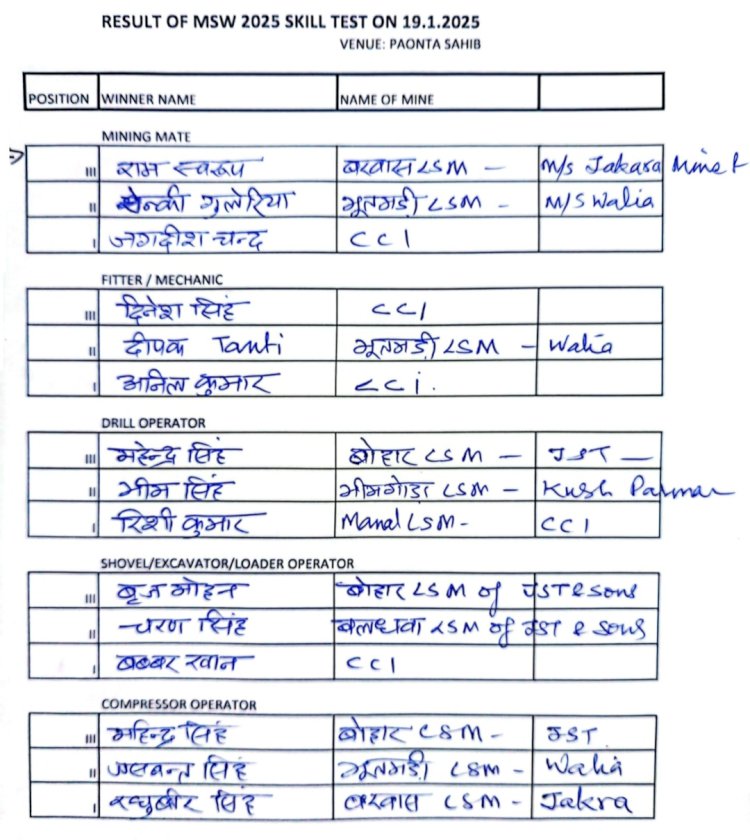 RESULT OF MSW 2025 SKILL TEST ON 19.1.2025
VENUE: PAONTA SAHIB
POSITION WINNER NAME NAME OF MINE
MINING MATE
III राम स्वरूप बरवास LSM - M/s Jakara Mine
II गुलेरिया भूतमड़ी LSM - M/S Walia
I जगदीश चन्द CCI
FITTER / MECHANIC
III दिनेश सिंह CCI
II दीपक Tanti भूतमड़ी LSM - Walia
I अनिल कुमार CCI.
DRILL OPERATOR
III महेन्द्र सिंह बोहार LSM - JST -
II भीम सिंह भीमगोडा LSM - Kush Parmar
I रिशी कुमार Manal LSM - CCI
SHOVEL/EXCAVATOR/LOADER OPERATOR
III बृज मोहन बोहार LSM of JST & sons
II चरण सिंह बलधवा LSM of JST & sons
I बब्बर खान CCI
COMPRESSOR OPERATOR
III महिन्द्र सिंह बोहार LSM - JST
II जसवन्त सिंह भूतमड़ी LSM - Walia
I रघुबीर सिंह बरवास LSM - Jakra